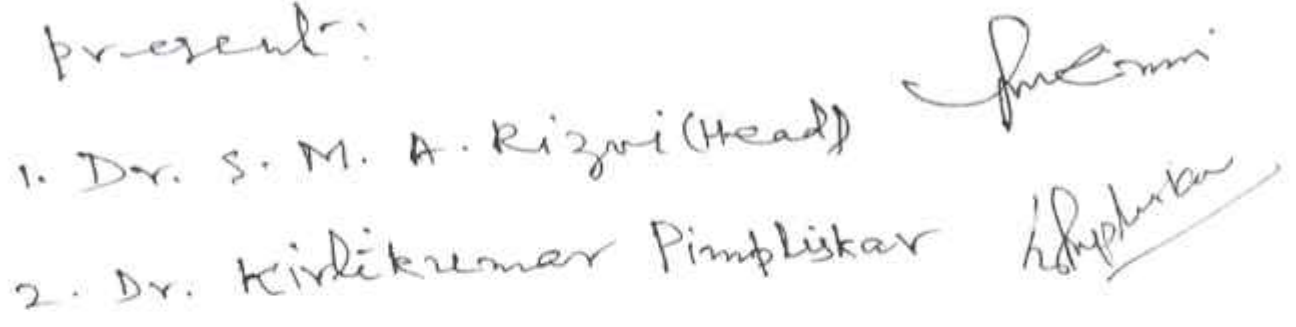 present:
1. Dr. S. M. A. Rizvi (Head)
2. Dr. Kirtikumar Pimpliskar